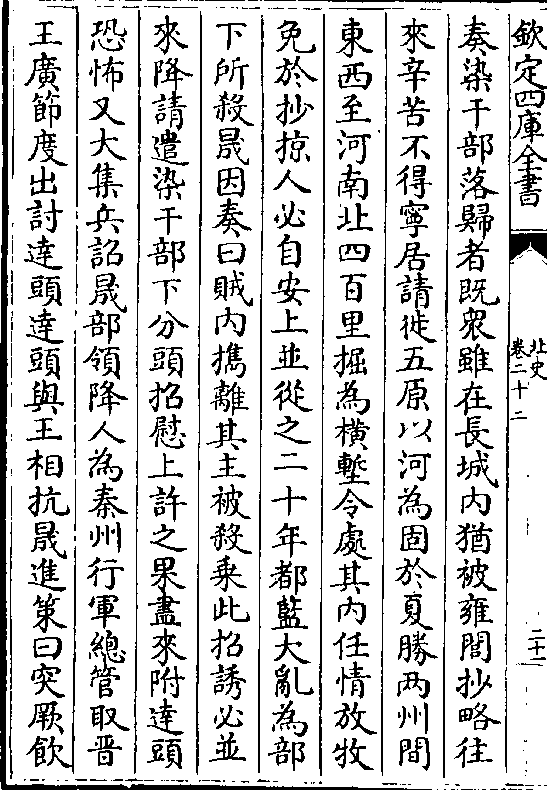 欽定四庫全書
北史
卷二十二
二十一
奏染干部落歸者既衆雖在長城内猶被雍閭抄略往
來辛苦不得寧居請徙五原以河為固於夏勝兩州間
東西至河南北四百里掘為横塹令處其内任情放牧
免於抄掠人必自安上並從之二十年都藍大亂為部
下所殺晟因奏曰賊内攜離其主被殺乗此招誘必並
來降請遣染干部下分頭招慰上許之果盡來附達頭
恐怖又大集兵詔晟部領降人為秦州行軍總管取晋
王廣節度出討達頭達頭與王相抗晟進策曰突厥飲